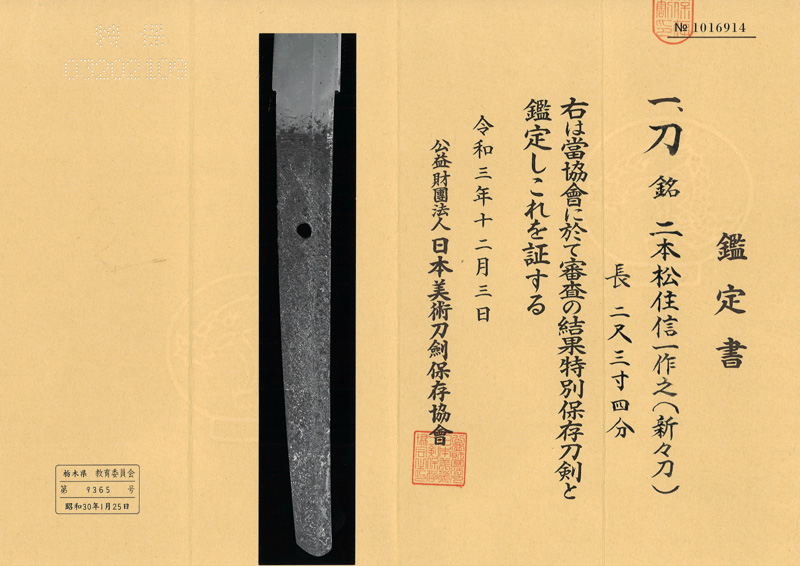 № 1016914
鑑定書
一、刀 銘 二本松住信一作之(新々刀)
長 二尺三寸四分
右は當協會に於て審査の結果特別保存刀剣と
鑑定しこれを証する
令和三年十二月三日
公益財團法人 日本美術刀劍保存協會
栃木県 教育委員会
第 9365 号
昭和30年1月25日